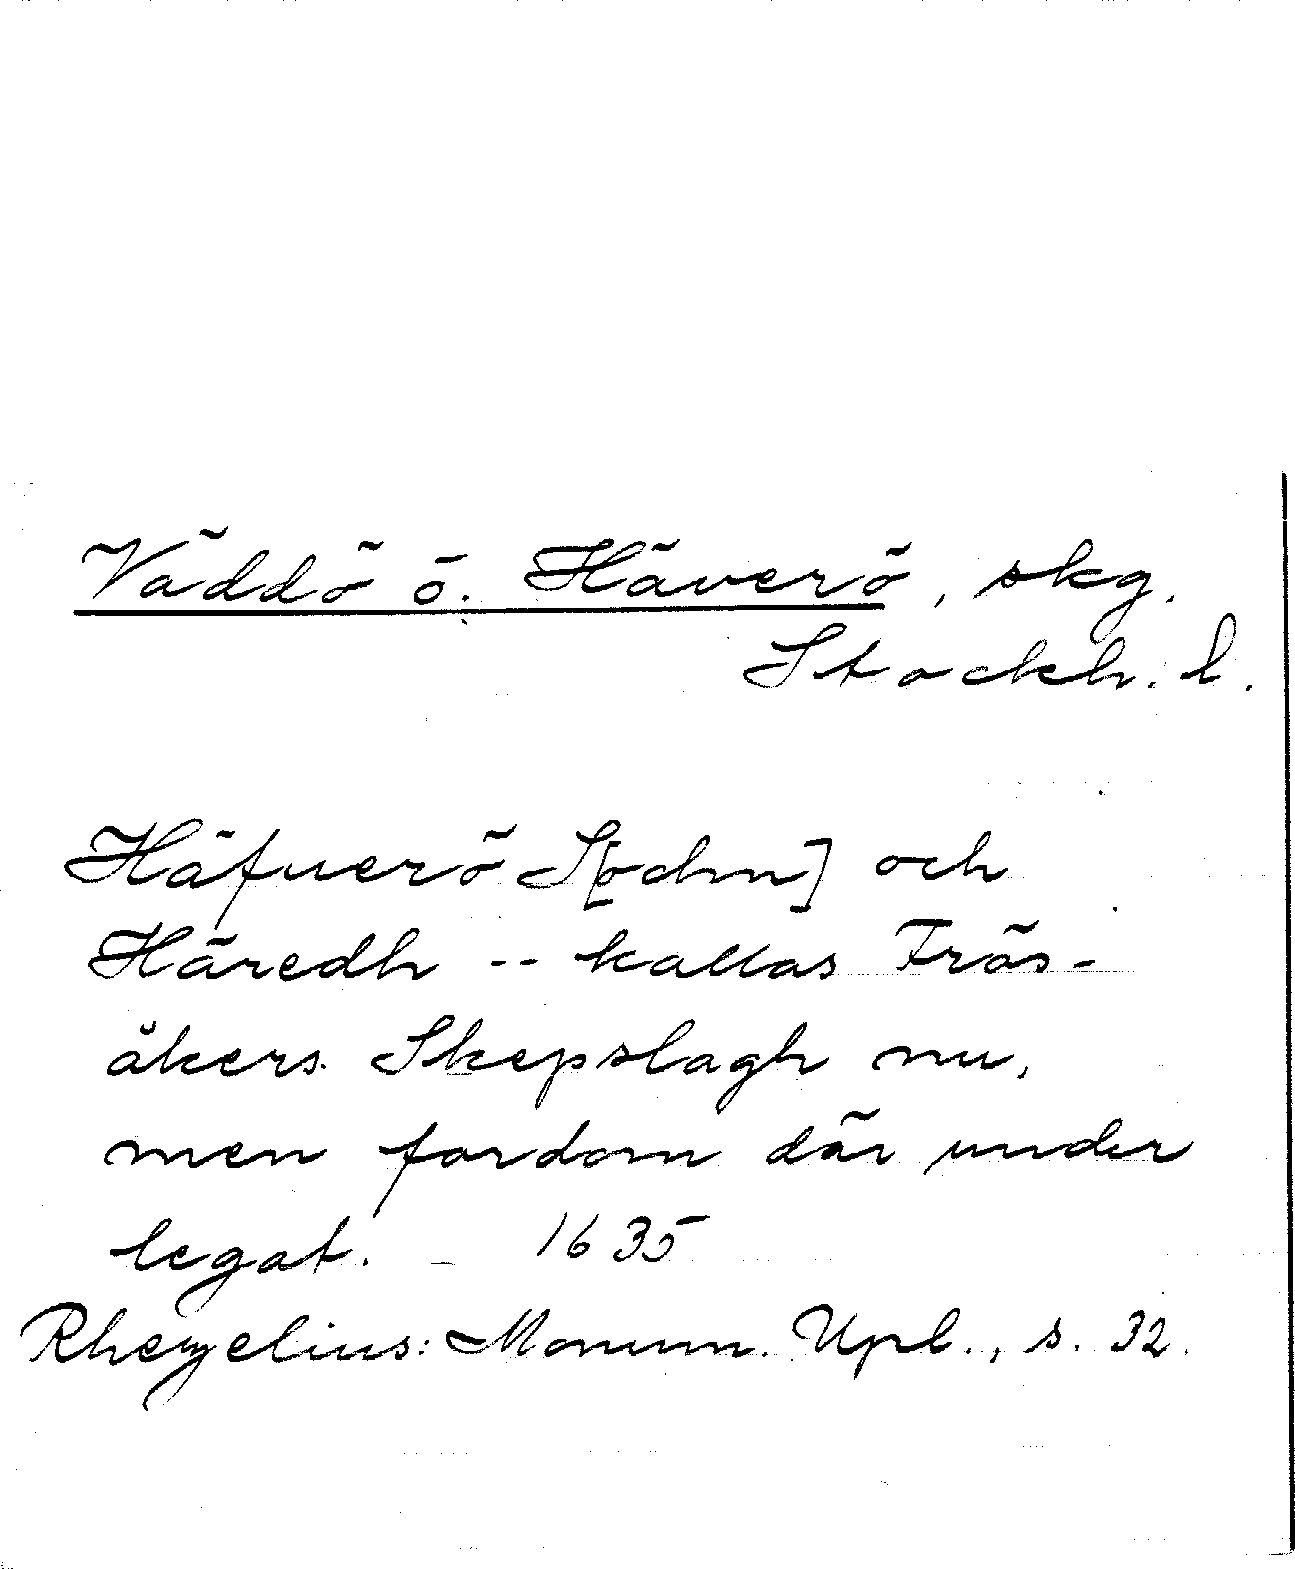 Väddö o. Häverö, skg.
Stockh. l.
Häfuerö S[ochn] och
Häredh -- kallas Frös-
åkers Skepslagh nu,
men fordom där under
legat. 1635
Rhezelius: Monum. Upl., s. 32.